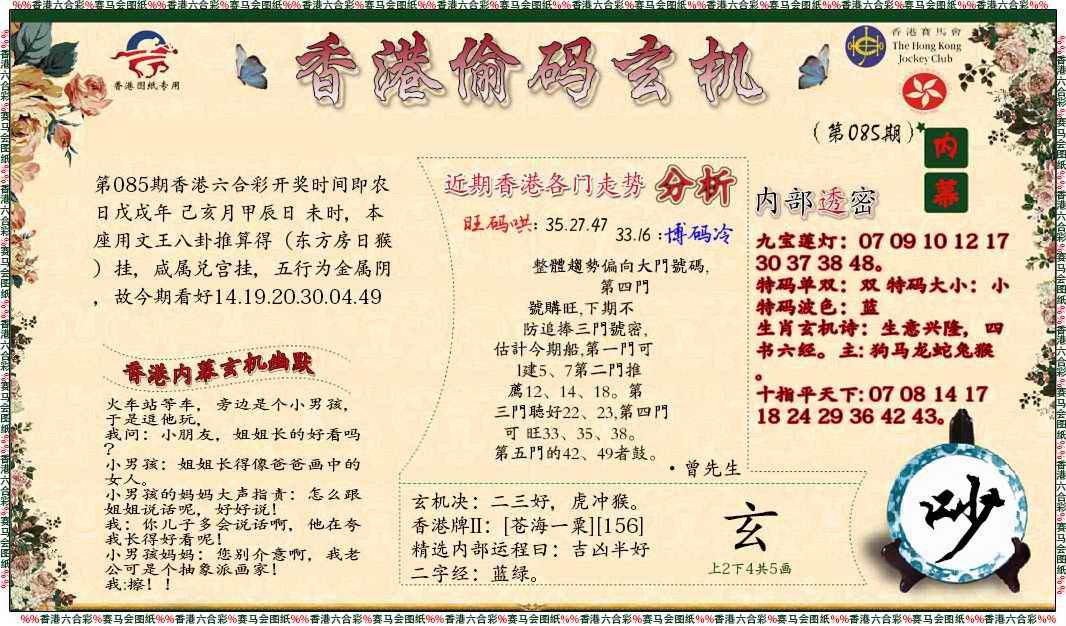 %%香港六合彩%赛马会图纸%%香港六合彩%赛马会图纸%%香港六合彩%赛马会图纸%%香港六合彩%赛马会图纸%%香港六合彩%赛马会图纸%%香港六合彩%赛马会图纸%%香港六合彩%%
香港图纸专用
香港偷码玄机
香港賽馬會
The Hong Kong
Jockey Club
(第085期)
内
幕
第085期香港六合彩开奖时间即农
日戊戌年 己亥月甲辰日 未时，本
座用文王八卦推算得（东方房日猴
）挂，咸属兑宫挂，五行为金属阴
，故今期看好14.19.20.30.04.49
香港内幕玄机幽默
火车站等车，旁边是个小男孩，
于是逗他玩，
我问：小朋友，姐姐长的好看吗
？
小男孩：姐姐长得像爸爸画中的
女人。
小男孩的妈妈大声指责：怎么跟
姐姐说话呢，好好说！
我：你儿子多会说话啊，他在夸
我长得好看呢！
小男孩妈妈：您别介意啊，我老
公可是个抽象派画家！
我:擦！！
近期香港各门走势 分析
旺码哄：35.27.47
33.16：博码冷
整體趨勢偏向大門號碼,
第四門
號購旺,下期不
防追捧三門號密,
估計今期船,第一門可
l建5、7第二門推
薦12、14、18。第
三門聴好22、23,第四門
可 旺33、35、38。
第五門的42、49者鼓。
·曾先生
内部透密
九宝莲灯：07 09 10 12 17
30 37 38 48。
特码单双：双 特码大小：小
特码波色：蓝
生肖玄机诗：生意兴隆，四
书六经。主: 狗马龙蛇兔猴
。
十指平天下: 07 08 14 17
18 24 29 36 42 43。
玄机决：二三好，虎冲猴。
香港牌II：[苍海一粟][156]
精选内部运程曰：吉凶半好
二字经：蓝绿。
玄
上2下4共5画
吵
%%香港六合彩%赛马会图纸%%香港六合彩%赛马会图纸%%香港六合彩%赛马会图纸%%香港六合彩%赛马会图纸%%香港六合彩%赛马会图纸%%香港六合彩%赛马会图纸%%香港六合彩%%